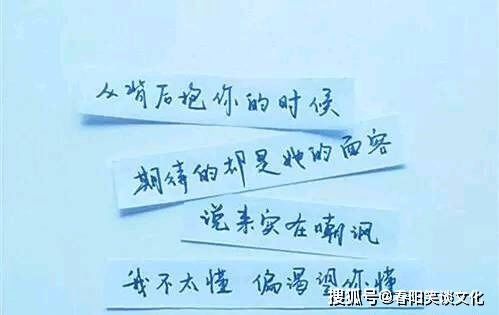 从背后抱你的时候
期待的却是她的面容
说来实在嘲讽
我不太懂 偏渴望你懂
搜狐号@春阳笑谈文化